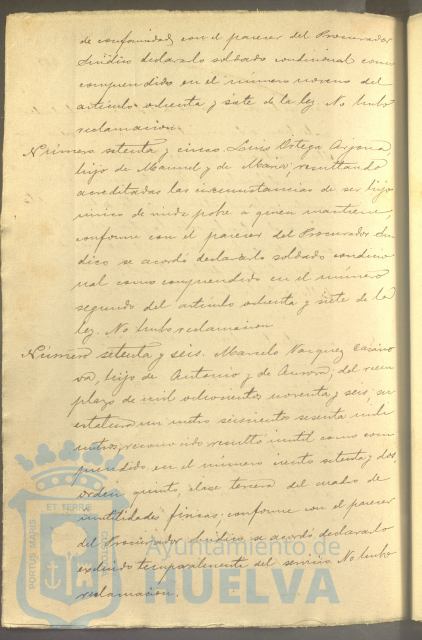 de conformidad con el parecer del Procurador
Síndico declararlo soldado condicional como
comprendido en el número noveno del
artículo ochenta y siete de la ley. No hubo
reclamacion.
Número setenta y cinco. Luis Ortega Arjona
hijo de Manuel y de Maria; resultando
acreditadas las circunstancias de ser hijo
único de viuda pobre a quien mantiene,
conforme con el parecer del Procurador Sin-
dico se acordó declararlo soldado condicio
nal como comprendido en el número
segundo del artículo ochenta y siete de la
ley. No hubo reclamacion.
Número setenta y seis. Marcelo Vazquez Casano
va, hijo de Antonio y de Aurora; del reem
plazo de mil ochocientos noventa y seis, su
estatura un metro seiscientos sesenta mili
metros, reconocido resultó inutil como com
prendido en el número ciento setenta y dos,
orden quinto, clase tercera del cuadro de
inutilidades fisicas; conforme con el parecer
del Procurador Síndico se acordó declararlo
excluido temporalmente del servicio. No hubo
reclamacion.
PORTUS MARIS ET TERRE CUSTODIA
Ayuntamiento de
HUELVA